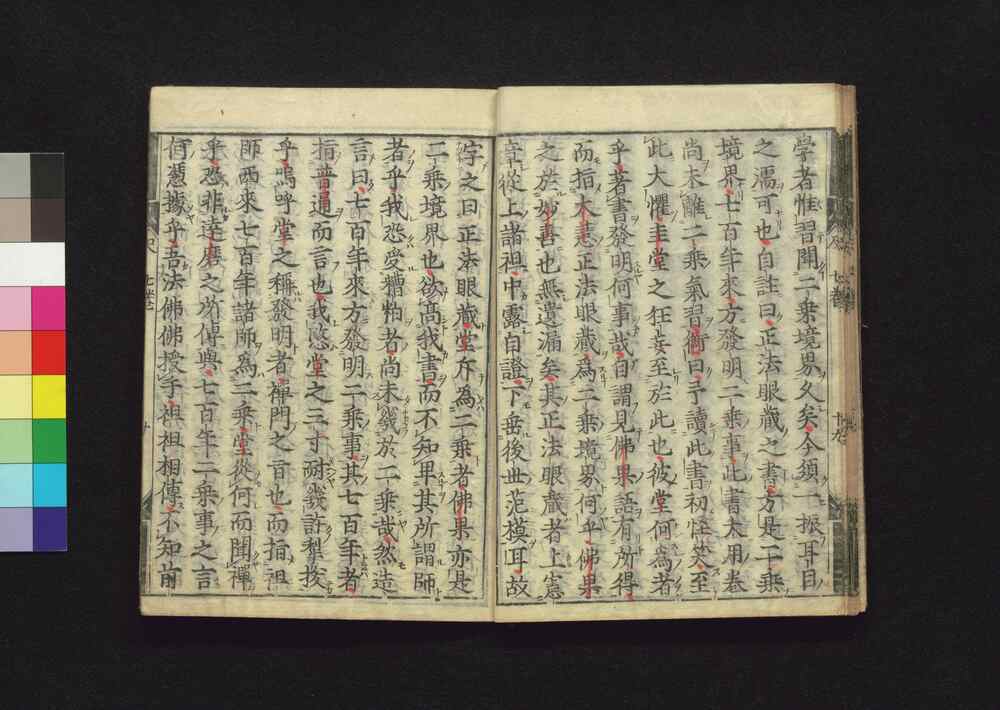 學者惟習聞二乘境界久矣今須一振耳目
之濡可也自註曰正法眼藏之書方是二乘
境界七百年來方發明二乘事此書大用卷
尚未離二乘氣習衝曰予讀此書初怪笑至
此大懼圭堂之狂妄至於此也彼堂何爲者
乎著書發明何事哉自謂見佛果語有所得
而指大慧正法眼藏爲二乘境界何乎佛果
之於妙喜也無遺漏矣其正法眼藏者上憲
章從上諸祖中露自證下垂後世范模耳故
字之曰正法眼藏堂斥爲二乘者佛果亦是
二乘境界也欲高我書而不知畢其所謂師
者乎我恐受糟粕者尚未幾於二乘哉然造
言曰七百年來方發明二乘事其七百年者
指普通而言也我惑堂之三寸耐幾許犁拔
乎嗚呼堂之稱發明者禪門之言也而指祖
師西來七百年諸師爲二乘堂從何而聞禪
乎恐非達磨之所傳與七百年二乘事之言
何憑據乎吾法佛佛授手祖祖相傳不知前